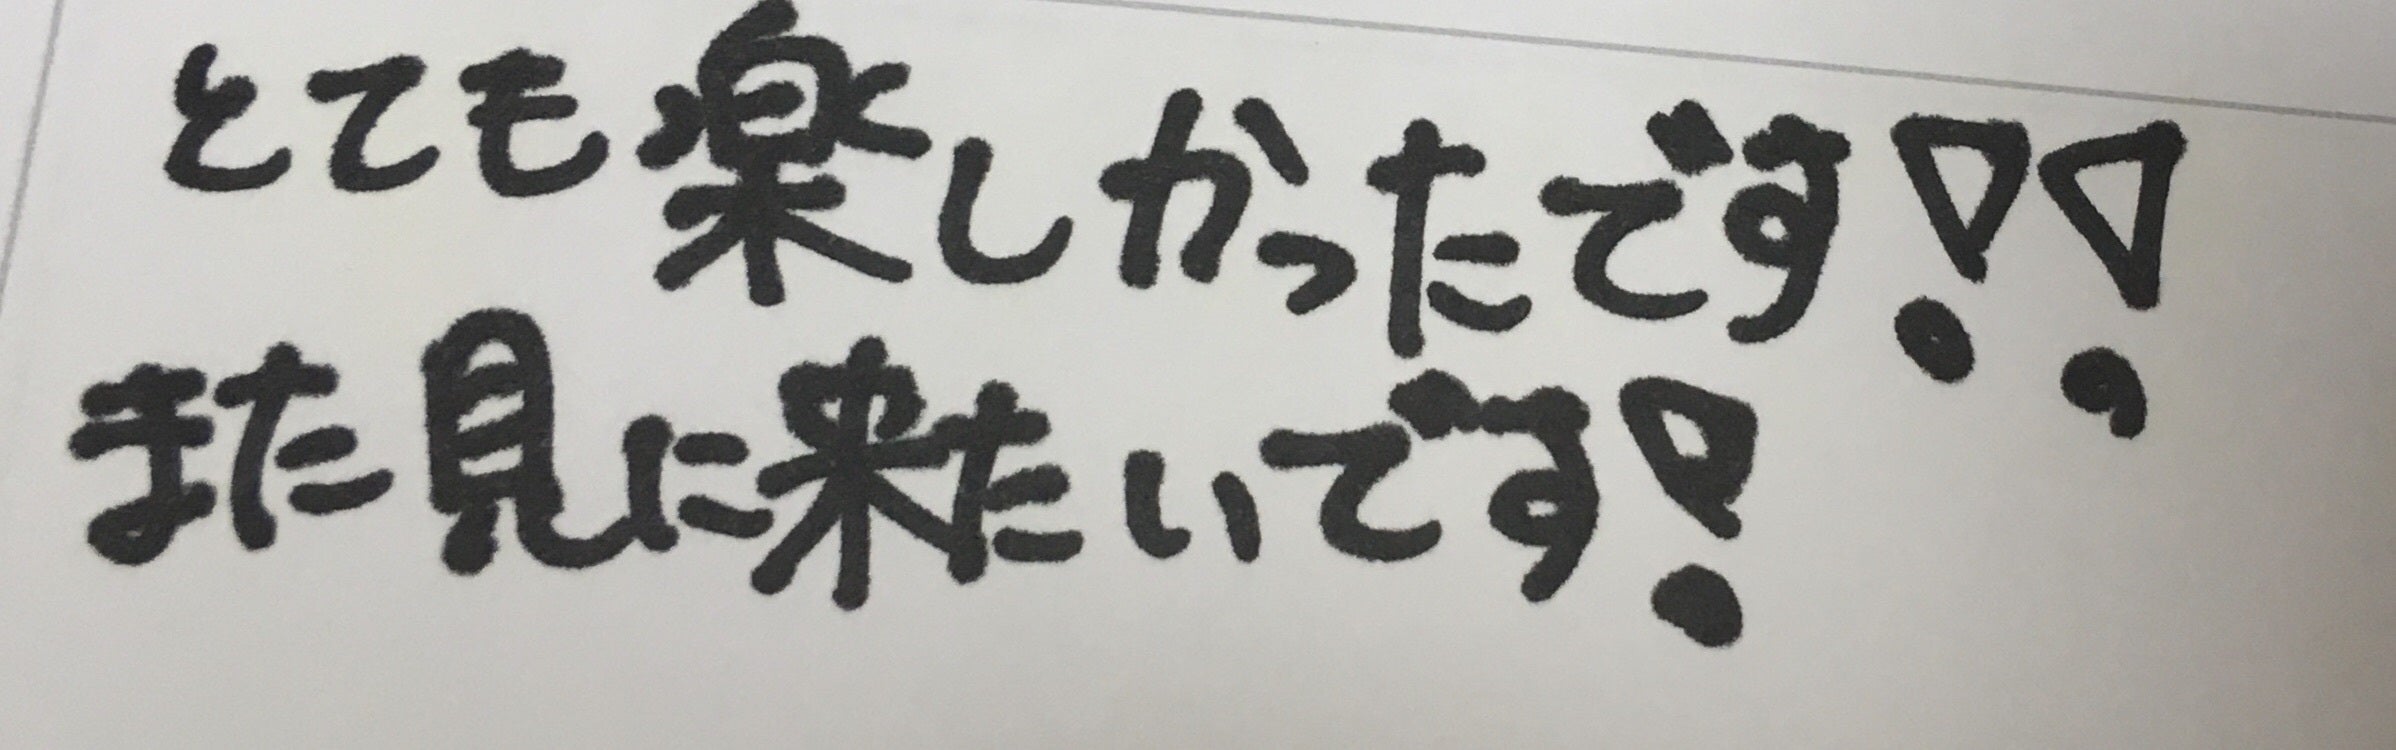 とても楽しかったです!!
また見に来たいです!